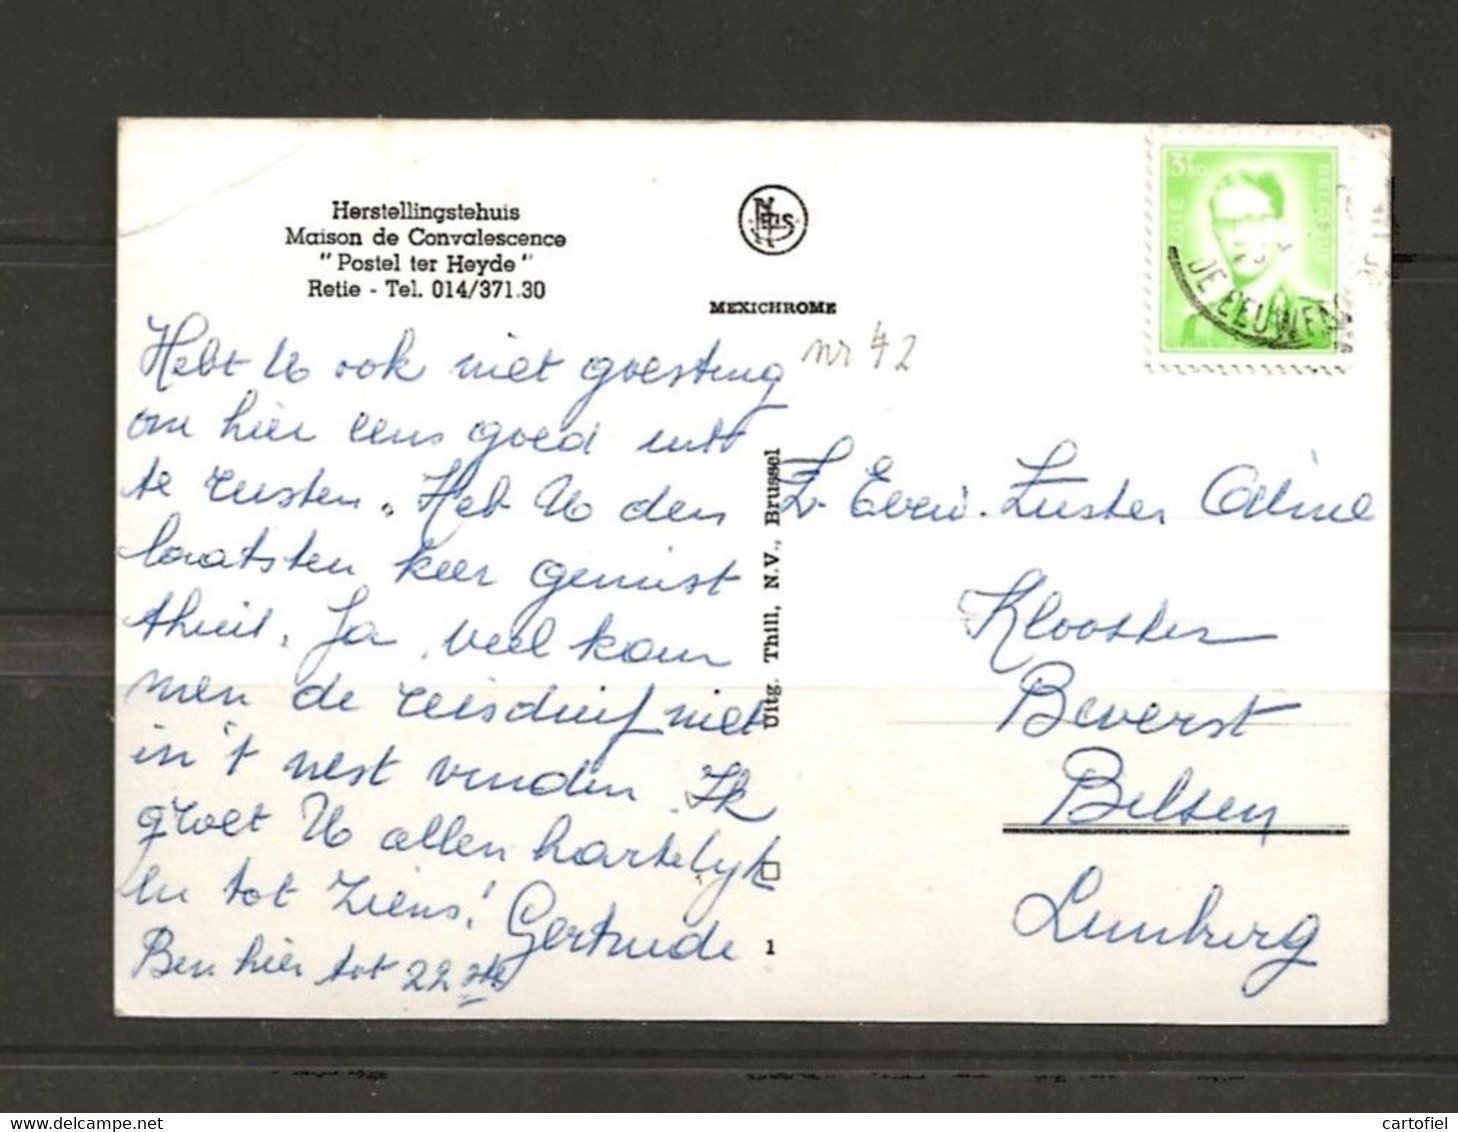 Herstellingstehuis
Maison de Convalescence
"Postel ter Heyde"
Retie - Tel. 014/371.30
MEXICHROME
3F50
BELGIQUE
DE EEUWFE
nr 42
Hebt U ook niet goesting
om hier eens goed uit
te rusten. Heb U den
laatsten keer gemist
thuis. Ja, veel kan
men de reisduif niet
in 't nest vinden. Ik
groet U allen hartelijk
en tot ziens! Gertrude
Ben hier tot 22ste
Uitg. Thill, N.V., Brussel
1
Z. Eerw. Zuster Celine
Klooster
Beverst
Bilsen
Limburg
cartofiel